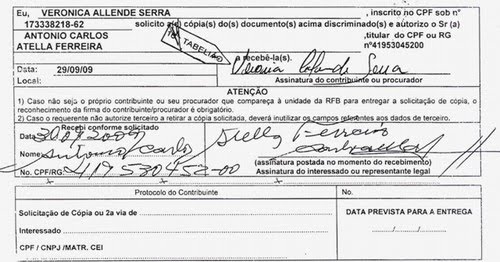 Eu, VERONICA ALLENDE SERRA , inscrito no CPF sob nº
173338218-62 solicito a(s) cópia(s) do(s) documento(s) acima discriminado(s) e autorizo o Sr (a)
ANTONIO CARLOS ,titular do CPF ou RG
ATELLA FERREIRA nº41953045200
TABELIÃO
a recebê-la(s).
Data: 29/09/09
Local:
Assinatura do contribuinte ou procurador
ATENÇÃO
1) Caso não seja o próprio contribuinte ou seu procurador que compareça à unidade da RFB para entregar a solicitação de cópia, o
reconhecimento da firma do contribuinte/procurador é obrigatório.
2) Caso o requerente não autorize terceiro a retirar a cópia solicitada, deverá inutilizar os campos referentes aos dados de terceiro.
Recebi conforme solicitado
Data
Nome: Antonio Carlos Atella Ferreira
(assinatura postada no momento do recebimento)
No. CPF/RG: 419530452-00 Assinatura do interessado ou representante legal
Protocolo do Contribuinte No.
Solicitação de Cópia ou 2a via de
DATA PREVISTA PARA A ENTREGA
Interessado
/ /
CPF / CNPJ /MATR. CEI